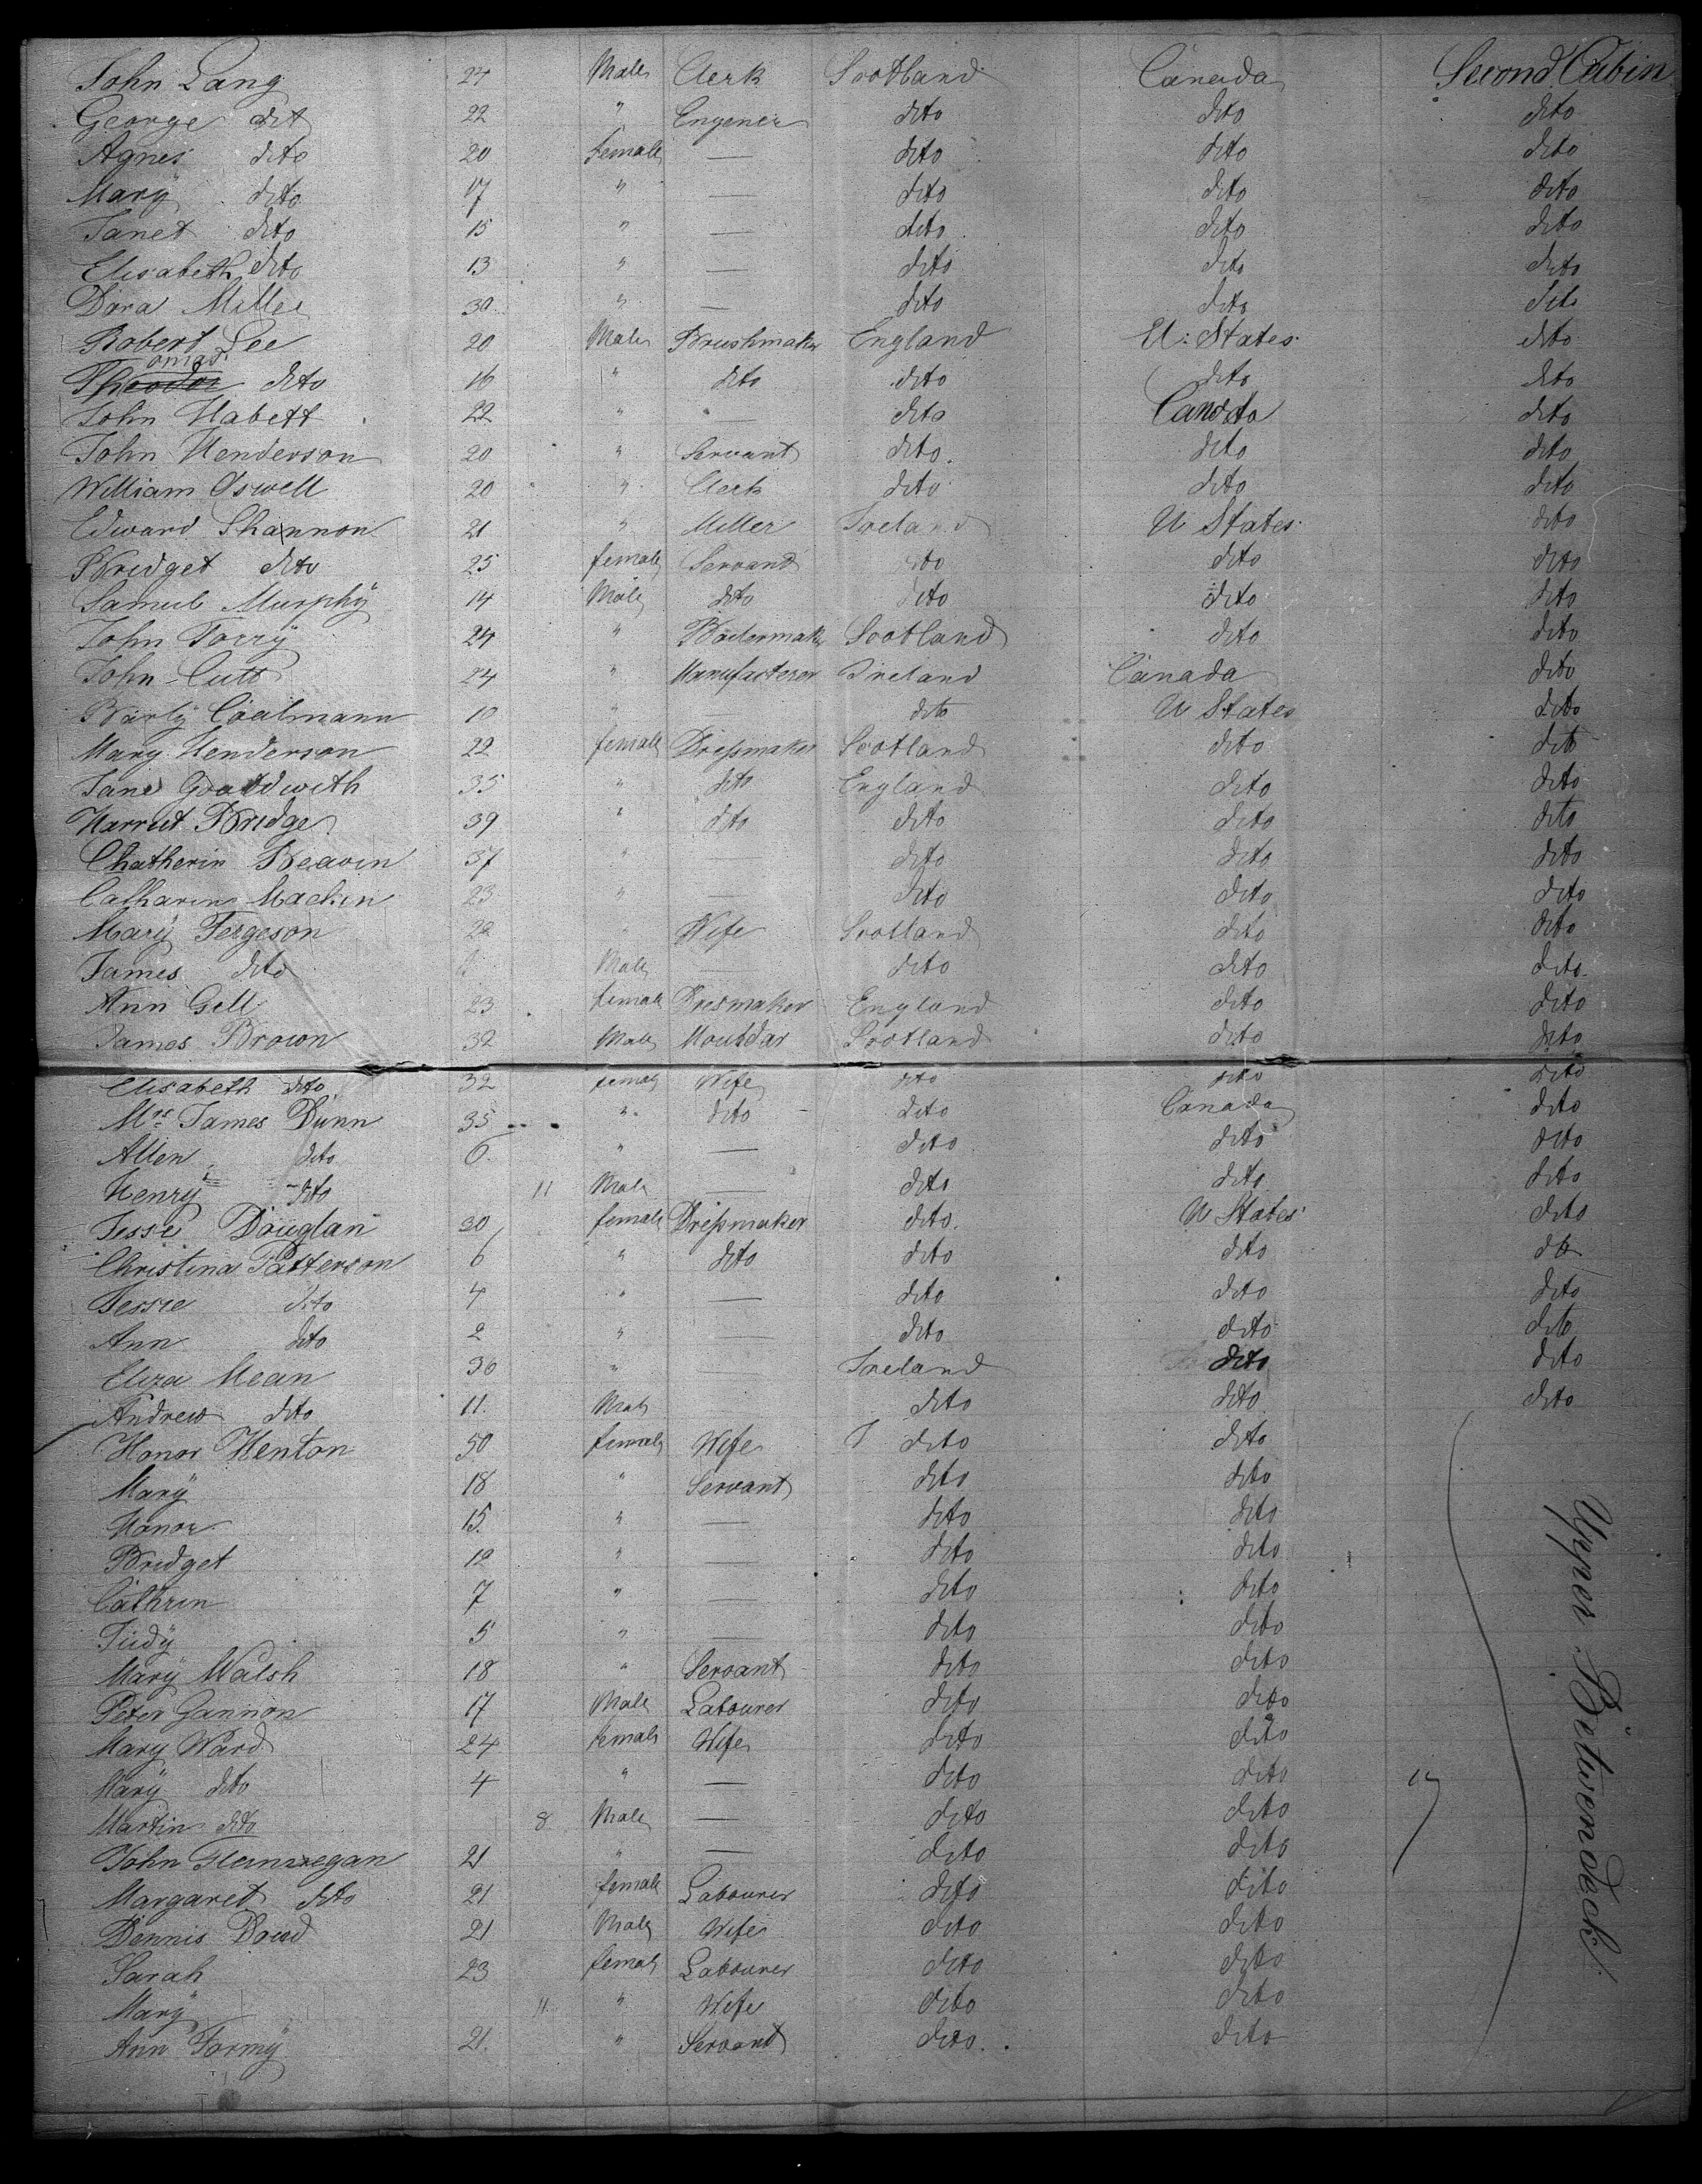 John Lang 24 Male Clerk Scotland Canada Second Cabin
George dit 22 " Engeneer dito dito dito
Agnes dito 20 female — dito dito dito
Mary dito 17 " — dito dito dito
Janet dito 15 " — dito dito dito
Elisabeth dito 13 " — dito dito dito
Dora Miller 30 " — dito dito dito
Robert Lee 20 Male Brushmaker England U. States dito
Thomas dito 16 " dito dito dito dito
John Habett 22 " — dito Canada dito
John Henderson 20 " Servant dito dito dito
William Oswell 20 " Clerk dito dito dito
Edward Shannon 21 " Miller Ireland U States dito
Bridget dito 25 female Servand dito dito dito
Samul Murphy 14 Male dito dito dito dito
John Torry 24 " Scotland dito dito
John Cutt 24 " Manufacterer Ireland Canada dito
Coalmann 10 " dito U States dito
Mary Henderson 22 female Dressmaker Scotland dito dito
Jane Goodwith 35 " dito England dito dito
Harriet Bridge 39 " dito dito dito dito
Chatherin Beavin 37 " dito dito dito
Catharin Mackin 23 " — dito dito dito
Mary Fergeson 22 " Wife Scotland dito dito
James dito Male — dito dito dito
Ann Gell 23 female Dresmaker England dito dito
James Brown 32 Male Scotland dito dito
Elisabeth dito 32 female Wife dito dito dito
Mrs James Dunn 35 " dito dito Canada dito
Allen dito 6 " — dito dito dito
Henry dito 11 Male — dito dito dito
Jesse Douglan 30 female Dressmaker dito U States dito
Christina Patterson 6 " dito dito dito dito
Jessie dito 4 " — dito dito dito
Ann dito 2 " — dito dito dito
Eliza Mean 30 " — Ireland dito dito
Andrew dito 11 Male dito dito dito
Honor Henton 50 female Wife dito dito
Mary 18 " Servant dito dito
Honor 15 " — dito dito
Bridget 12 " — dito dito
Cathrin 7 " — dito dito
Judy 5 " — dito dito
Mary Walsh 18 " Servant dito dito
Peter Gannon 17 Male Labourer dito dito
Mary Ward 24 female Wife dito dito
Mary dito 4 " — dito dito
Martin dito 8 Male — dito dito
John 21 " — dito dito
Margaret dito 21 female Labourer dito dito
Dennis Dowd 21 Male Wife dito dito
Sarah 23 female Labourer dito dito
Mary 11 " Wife dito dito
Ann Tormy 21 " Servant dito dito
Upper Betwendeck